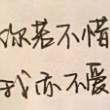 你若不惜
我亦不爱